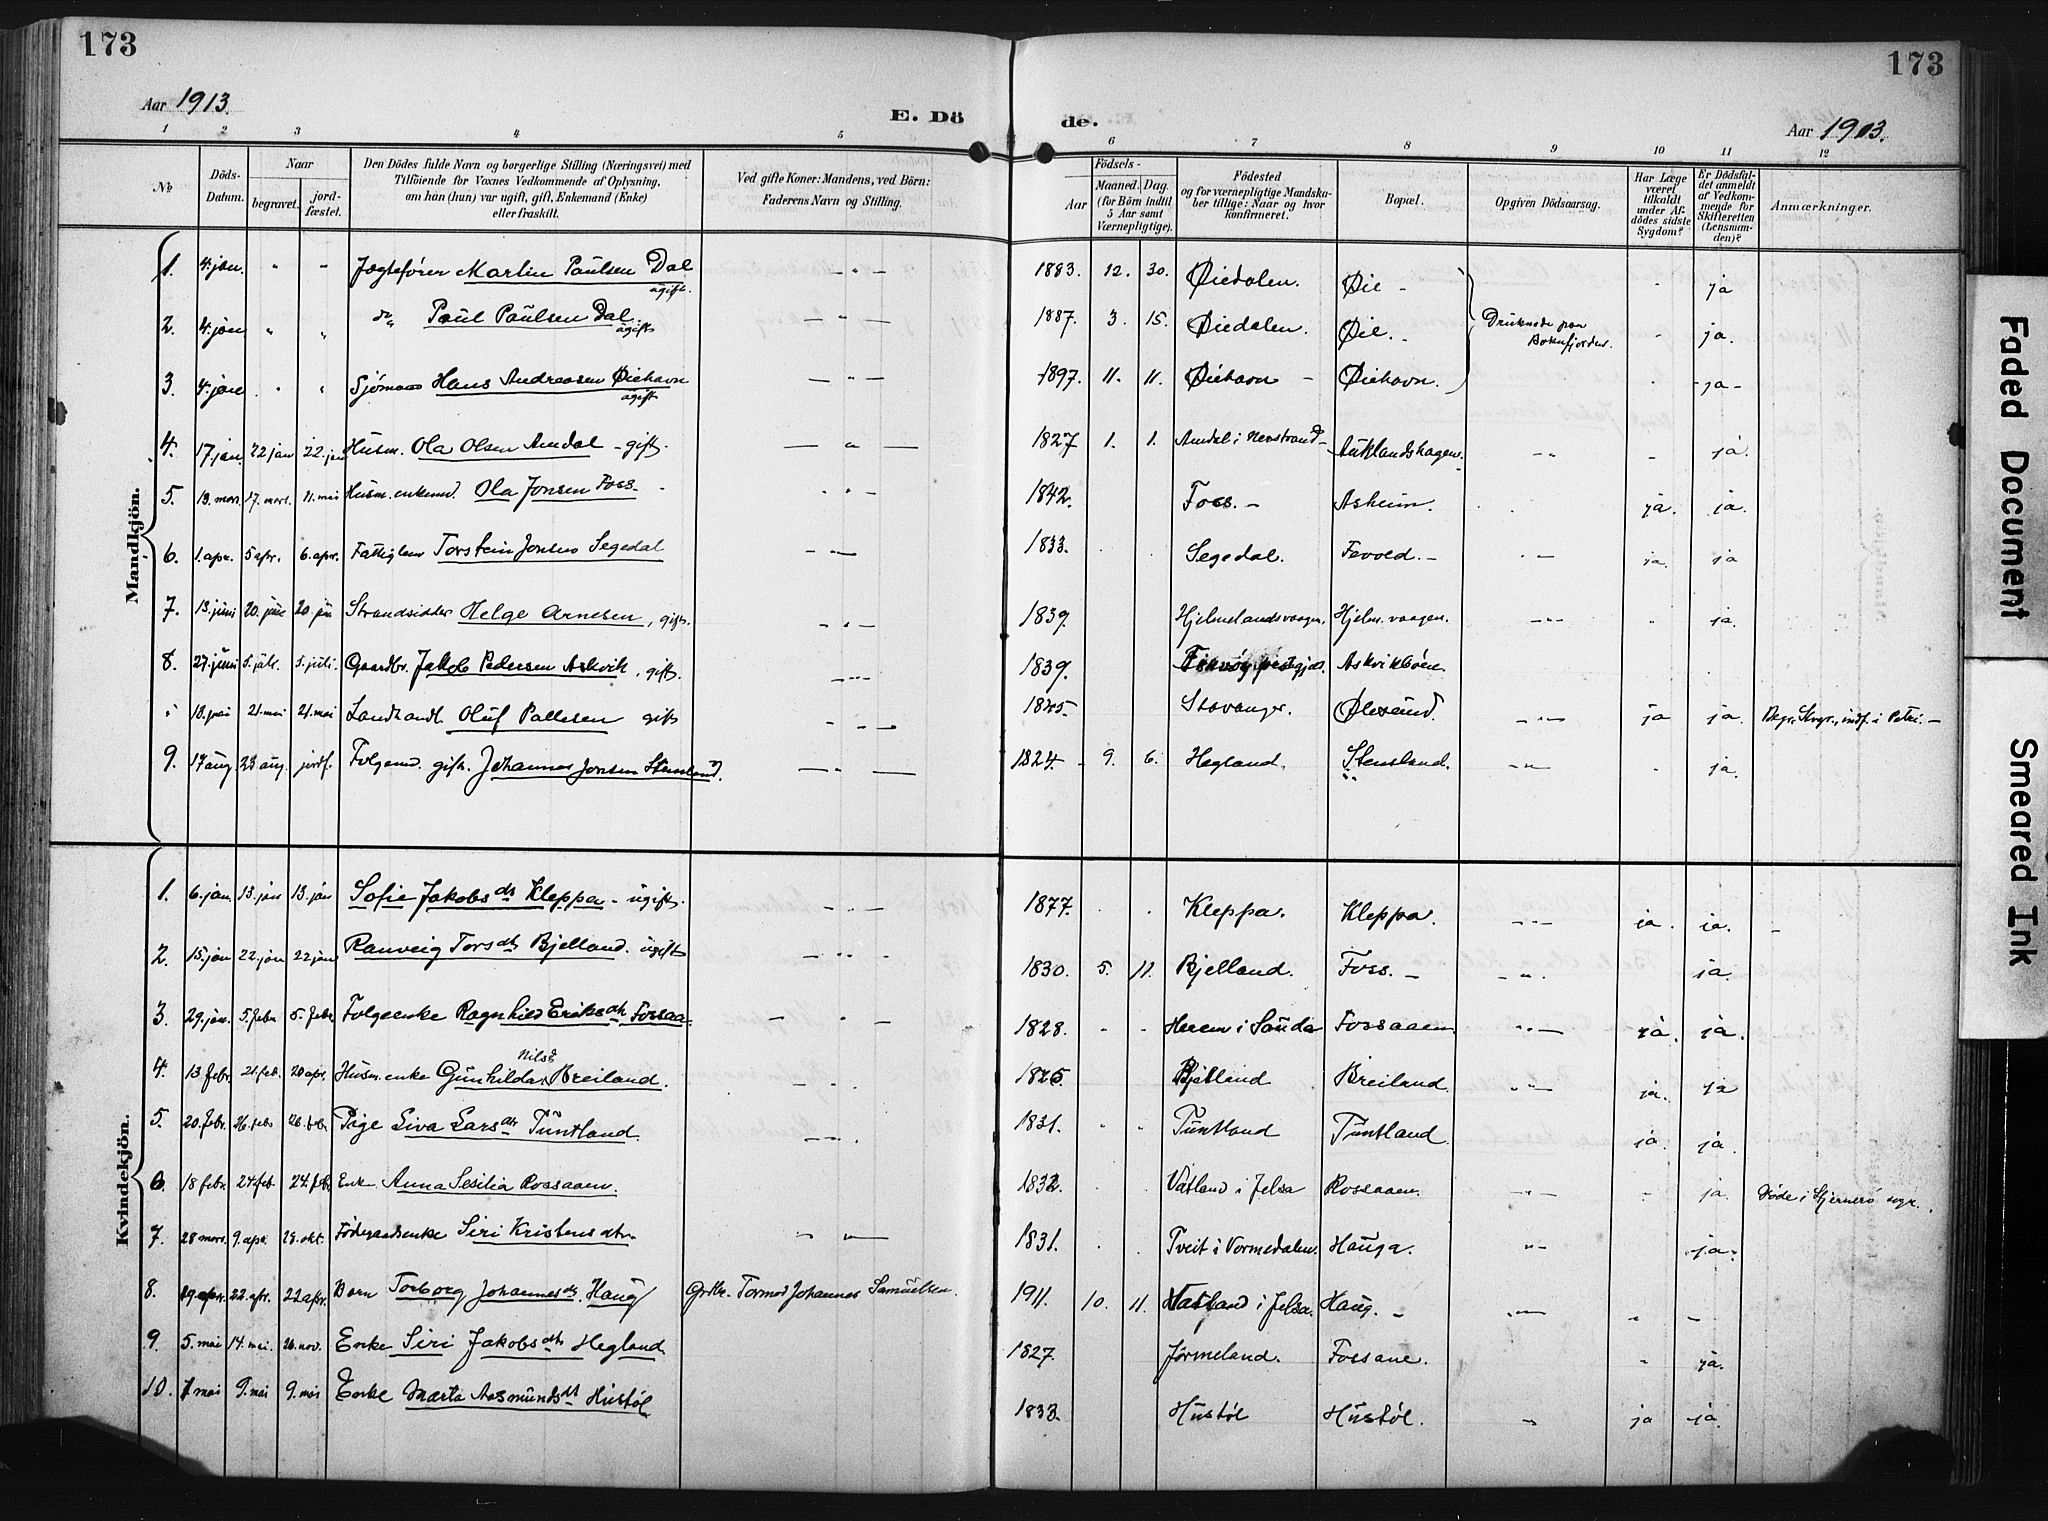 173
173
Aar 1913.
E. Dö
de.
Aar 1913.
1 2 3 4 5 6 7 8 9 10 11 12
№
Döds-Datum.
Naar
begravet.
jord-fæstet.
Den Dödes fulde Navn og borgerlige Stilling (Næringsvei) med
Tilföiende for Voxnes Vedkommende af Oplysning,
om han (hun) var ugift, gift, Enkemand (Enke)
eller fraskilt.
Ved gifte Koner: Mandens, ved Börn:
Faderens Navn og Stilling.
Födsels-
Aar
Maaned. Dag.
(for Börn indtil
5 Aar samt
Værnepligtige).
Födested
og for værnepligtige Mandska-
ber tillige: Naar og hvor
konfirmeret.
Bopæl.
Opgiven Dödsaarsag.
Har Læge
været
tilkaldt
under Af-
dödes sidste
Sygdom?
Er Dödsfal-
det anmeldt
af Vedkom-
mende for
Skifteretten
(Lensman-
den)?
Anmærkninger.
Mandkjön.
1. 4. jan. " " Jægtefører Martin Paulsen Dal ugift. - " - 1883. 12. 30. Øiedalen. Øie - ja
2. 4. jan " " do Paul Paulsen Dal. ugift - " - 1887. 3. 15. Øiedalen. Øie. - Druknede paa Boknfjorden. " ja.
3. 4. jan " " Sjømand Hans Andreasen Øiehavn ugift - " - 1897. 11. 11. Øiehavn - Øiehavn. - ja -
4. 17. jan. 22 jan 22. jan Husm. Ola Olsen Amdal - gift. - " - 1827 1. 1. Amdal i Nerstrand - Auklandshagen. - " - - ja.
5. 13. mars. 17. mars. 11. mai Husm. enkemd. Ola Jonsen Foss - " - 1842. Foss. - Asheim. ja. ja.
6. 1. apr. 5 apr. 6. apr. Fattiglem Torstein Jonsen Segedal - " - 1833. Segedal. Fevold. - " - ja. ja
7. 13. juni 20. juni 20. jun Strandsidder Helge Arnesen, gift. - " - 1839. Hjelmelandsvaagen. Hjelm. vaagen. - " - " ja.
8. 27. juni 5. juli. 5. juli. Gaardbr. Jakob Pedersen Askvik, gift. - " - 1839. Askvikbøen.
" 18. mai 21. mai 21. mai Landhandl. Oluf Pallesen gift - " - 1845. Stavanger. Ølesund. - " - ja ja. indf. i Petri. -
9. 17 aug. 23 aug. jordf. Folgemd. gift. Johannes Jonsen Stensland. - " - 1824. 9. 6. Hegland. Stensland. - " - " ja.
Kvindekjön.
1. 6. jan. 13. jan 13. jan Sofie Jakobsdtr Kleppa - ugift. - " - 1877. Kleppa. Kleppa. - " - ja. ja. -
2. 15. jan 22. jan 22 jan Ranveig Torsdtr Bjelland. ugift - " - 1830. 5. 11. Bjelland. Foss. - - " - ja.
3. 29. jan. 5. febr 5. febr Folgeenke Ragnhild Eriksdtr Fossaa. - " - 1828. " " i Sauda Fossaaen. " " - ja. ja.
4. 13 febr. 21. feb. 20 apr. Husm. enke Gunhilda Nilsd Breiland. - " - 1825. Bjelland Breiland. - " - ja. ja
5. 20. febr. 26. febr 26. feb. Pige Siva Larsdtr Tuntland. - " - 1831. " " Tuntland Tuntland. ja. ja.
6. 18 febr. 24. feb. 24. feb. Enke Anna Sesilia Rossaaen. 1832. Vatland i Jelsa Rossaaen. - " - " ja. Døde i Sjernerø sogn.
7. 28 mars. 9. apr. 29. okt. Føderaadsenke Siri Kristensdtr. " " - 1831. Tveit i Vormedalen. Hauga. " - ja.
8. 19 apr. 22. apr. 22 apr. Barn Torborg Johannesdtr. Haug Grdbr. Tormod Johannes Samuelsen. 1911. 10. 11. Vatland i Jelsa. Haug. - - " - " -
9. 5. mai 14. mai. 26. nov. Enke Siri Jakobsdtr Hegland. 1827. Jørmeland. Fossane. " ja.
10. 7. mai 9. mai 9. mai Enke Marta Aasmundsdt Hustøl 1833. Hustøl Hustøl. " ja ja.
Faded Document
Smeared Ink